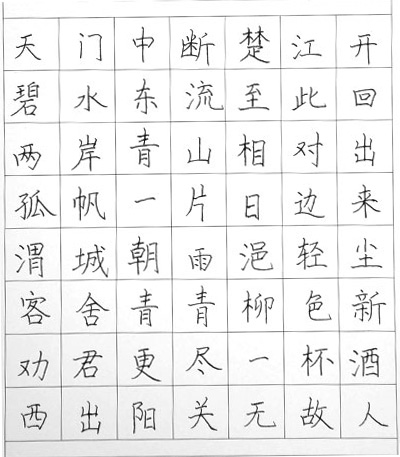 天门中断楚江开
碧水东流至此回
两岸青山相对出
孤帆一片日边来
渭城朝雨浥轻尘
客舍青青柳色新
劝君更尽一杯酒
西出阳关无故人